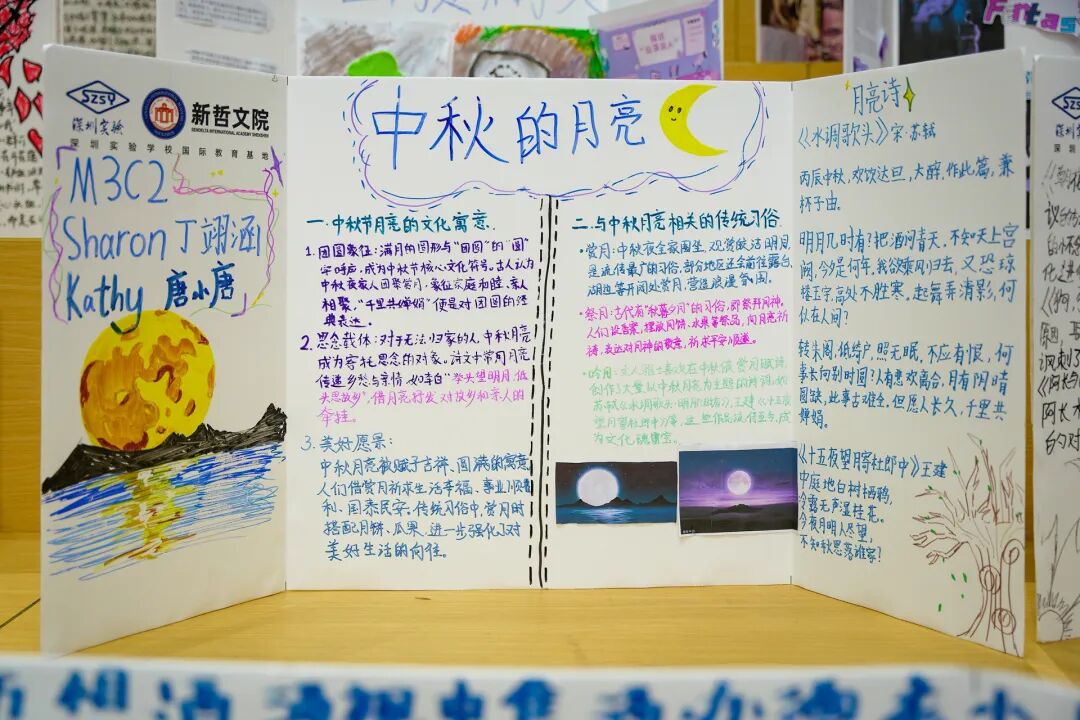 SZSY
深圳实验
新哲文院
SENDELTA INTERNATIONAL ACADEMY SHENZHEN
深圳实验学校国际教育基地
M3C2
Sharon 丁翊涵
Kathy 唐小唐
中秋的月亮
一.中秋节月亮的文化寓意.
1. 团圆象征:满月的圆形与“团圆”的“圆”
字呼应,成为中秋节核心文化符号。古人认为
中秋夜家人团聚赏月,象征家庭和睦、亲人
相聚,“千里共婵娟”便是对团圆的经
典表达。
2. 思念载体:对于无法归家的人,中秋月亮
成为寄托思念的对象。诗文中常用月亮
传递乡愁与亲情,如李白“举头望明月,低
头思故乡”,借月亮抒发对故乡和亲人的
牵挂。
3. 美好愿景:
中秋月亮被赋予吉祥、圆满的寓意,
人们借赏月祈求生活幸福、事业顺
利、国泰民安,传统习俗中,赏月时
搭配月饼、瓜果,进一步强化了对
美好生活的向往。
二.与中秋月亮相关的传统习俗
·赏月:中秋夜全家围坐,观赏皎洁明月,
是流传最广的习俗,部分地区还会前往露台、
湖边等开阔处赏月,营造浪漫氛围。
·祭月:古代有“秋暮夕月”的习俗,即祭拜月神。
人们设香案,摆放月饼、水果等祭品,向月亮祈
祷,表达对月神的敬意,祈求平安顺遂。
·吟月:文人雅士喜欢在中秋借赏月赋诗,
创作了大量以中秋月亮为主题的诗词,如
苏轼《水调歌头·明月几时有》、王建《十五夜
望月寄杜郎中》等,这些作品流传至今,成
为文化瑰宝。
月亮诗
《水调歌头》宋·苏轼
丙辰中秋,欢饮达旦,大醉,作此篇,兼
怀子由。
明月几时有?把酒问青天,不知天上宫
阙,今夕是何年,我欲乘风归去,又恐琼
楼玉宇,高处不胜寒。起舞弄清影,何
似在人间?
转朱阁,低绮户,照无眠,不应有恨,何
事长向别时圆?人有悲欢离合,月有阴晴
圆缺,此事古难全。但愿人长久,千里共
婵娟。
《十五夜望月寄杜郎中》王建
中庭地白树栖鸦,
冷露无声湿桂花。
今夜月明人尽望,
不知秋思落谁家?
SZSY